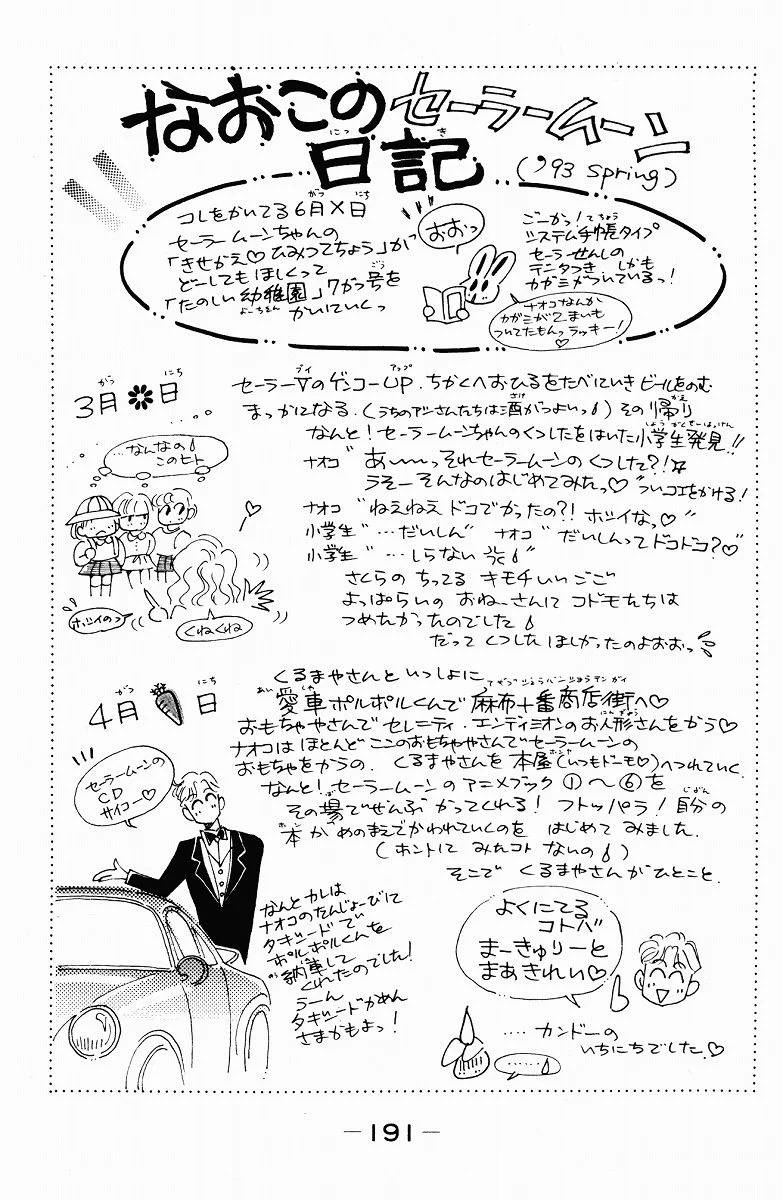 なおこのセーラームーン
日記
にっき
('93 spring)
コレをかいてる6月×日
がつ にち
セーラームーンちゃんの
「きせかえ♡ひみつてちょう」が
どーしてもほしくって
「たのしい幼稚園」7がつ号を
ようちえん ごう
かいにいくっ
おおっ
ごーかっ!
てちょう
システム手帳タイプ
セーラーせんしの
データつき しかも
カガミがついているっ!
ナオコなんか
カガミが2まいも
ついてたもんっラッキー!
♡
3月✽日
がつ にち
ブイ アップ
セーラーVのゲンコーUP.ちかくへおひるをたべにいきビールをのむ
さけ かえ
まっかになる.(うちのアシさんたちは酒がつよいっ)その帰り
しょうがくせいはっけん
なんと!セーラームーンちゃんのくつしたをはいた小学生発見!!
ナオコ〝あ〜〜っそれセーラームーンのくつした?!
うそーそんなのはじめてみたっ♡〞ついコエをかける!
ナオコ〝ねえねえドコでかったの?!ホシイなっ♡〞
小学生〝…だいしん〞ナオコ〝だいしんってドコドコ?♡〞
小学生〝…しらない〞
さくらのちってるキモチいいごご
よっぱらいのおねーさんにコドモたちは
つめたかったのでした
だってくつしたほしかったのよおおっ
…なんなの
このヒト
ホシイのっ
くねくね
4月 日
がつ にち
くるまやさんといっしょに
あい しゃ あざぶじゅうばんしょうてんがい
愛車ポルポルくんで麻布十番商店街へ♡
にんぎょう
おもちゃやさんでセレニティ・エンディミオンのお人形さんをかう♡
ナオコはほとんどここのおもちゃやさんでセーラームーンの
ホンヤ
おもちゃをかうの.くるまやさんを本屋(いつもドーモ♡)へつれていく
なんと!セーラームーンのアニメブック①〜⑥を
じぶん
その場でぜんぶかってくれる!フトッパラ!自分の
ホン
本がめのまえでかわれていくのをはじめてみました.
(ホントにみたコトないの)
そこでくるまやさんがひとこと
セーラームーンの
CD
サイコー♡
なんとカレは
ナオコのたんじょーびに
タキシードで
ポルポルくんを
納車して
くれたのでした!
うーん
タキシードかめん
さまかもよっ!
よくにてる
コトバ
まーきゅりーと
まあきれい♡
……カンドーの
いちにちでした.♡
……
—191—